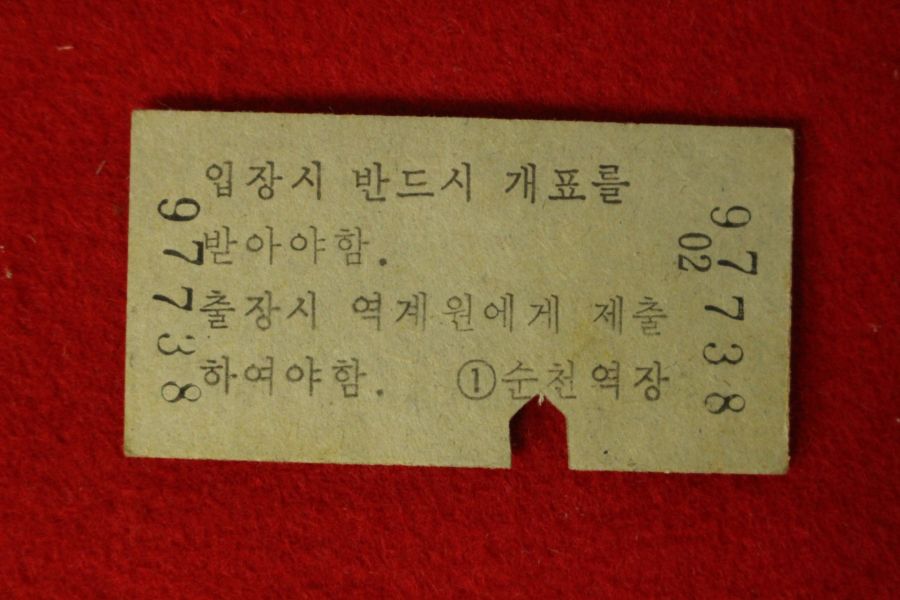 입장시 반드시 개표를
받아야함.
출장시 역계원에게 제출
하여야함. ①순천역장
97738
97738
02